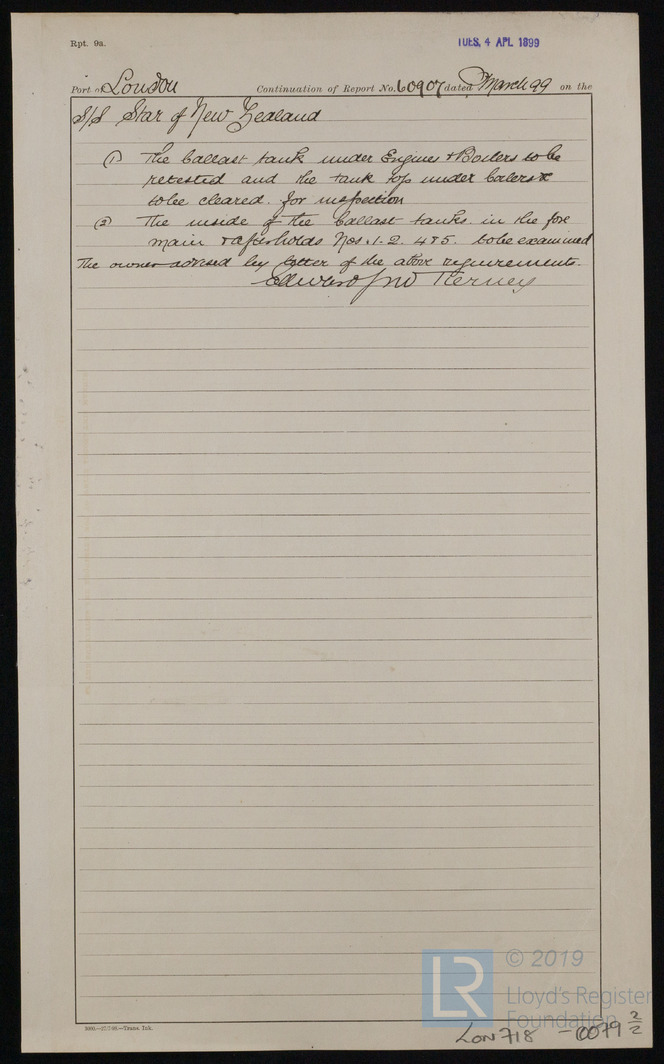 Rpt. 9a.
TUES. 4 APL 1899
Port of London Continuation of Report No. 60907 dated March 99 on the
S/S Star of New Zealand
(1) The ballast tank under Engines & Boilers to be
retested and the tank top under boilers
to be cleared. for inspection
(2) The inside of the ballast tanks in the fore
main & after holds Nos. 1. 2. 4 & 5. to be examined
The owner advised by letter of the above requirements.
Tierney
5000.—
—Trans. Ink.
LR
© 2019
Lloyd's Register
Foundation
LON718 - 0079 2/2